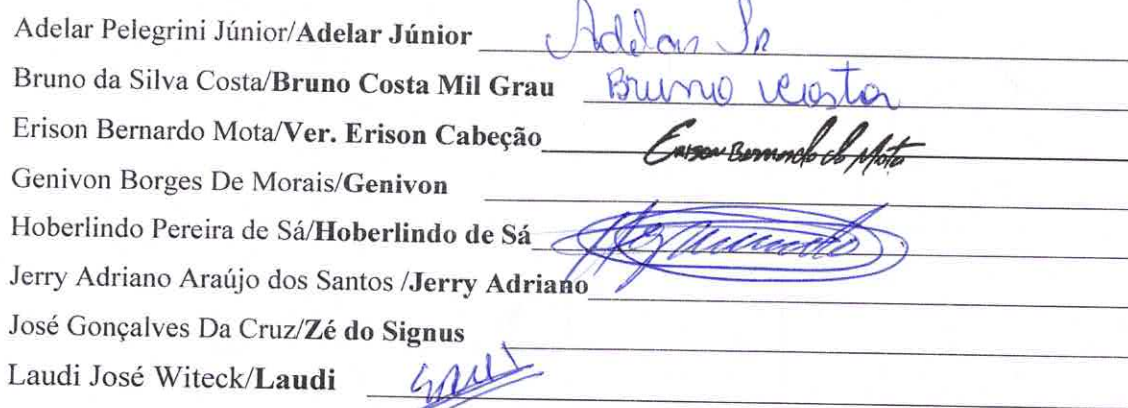 Adelar Pelegrini Júnior/Adelar Júnior Adelar Jr
Bruno da Silva Costa/Bruno Costa Mil Grau Bruno Costa
Erison Bernardo Mota/Ver. Erison Cabeção Erison Bernardo do Mota
Genivon Borges De Morais/Genivon
Hoberlindo Pereira de Sá/Hoberlindo de Sá
Jerry Adriano Araújo dos Santos /Jerry Adriano
José Gonçalves Da Cruz/Zé do Signus
Laudi José Witeck/Laudi